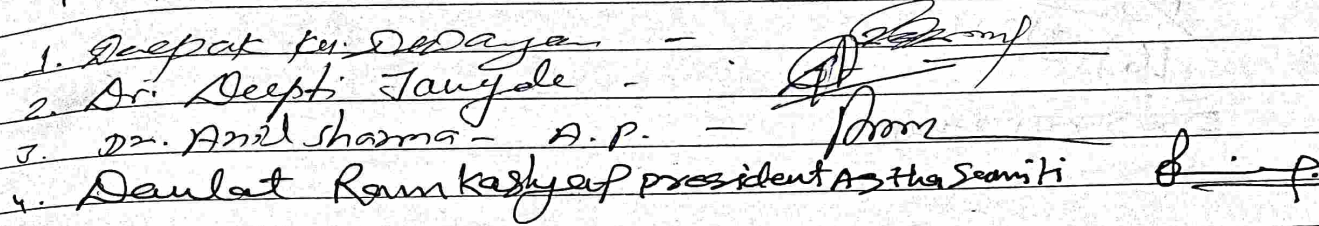 1. Deepak Kr. Dewangan -
2. Dr. Deepti Jangde -
3. Dr. Anil Sharma - A.P. -
4. Daulat Ram Kashyap president Astha Samiti